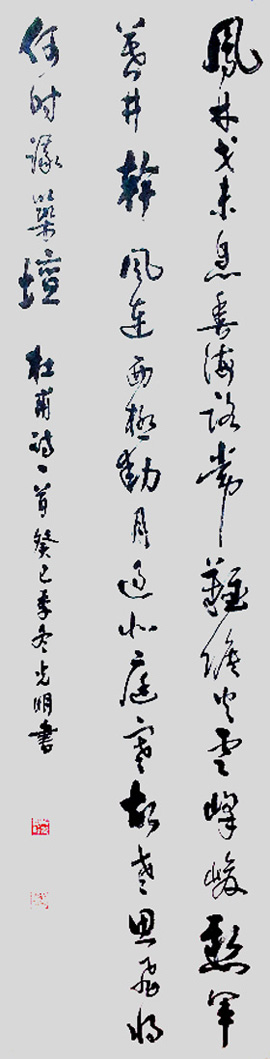 鳳林戈未息魚海路常難候火雲峰峻懸軍
幕井幹風連西極動月過北庭寒故老思飛將
何時議築壇 杜甫詩一首癸巳季冬光明書